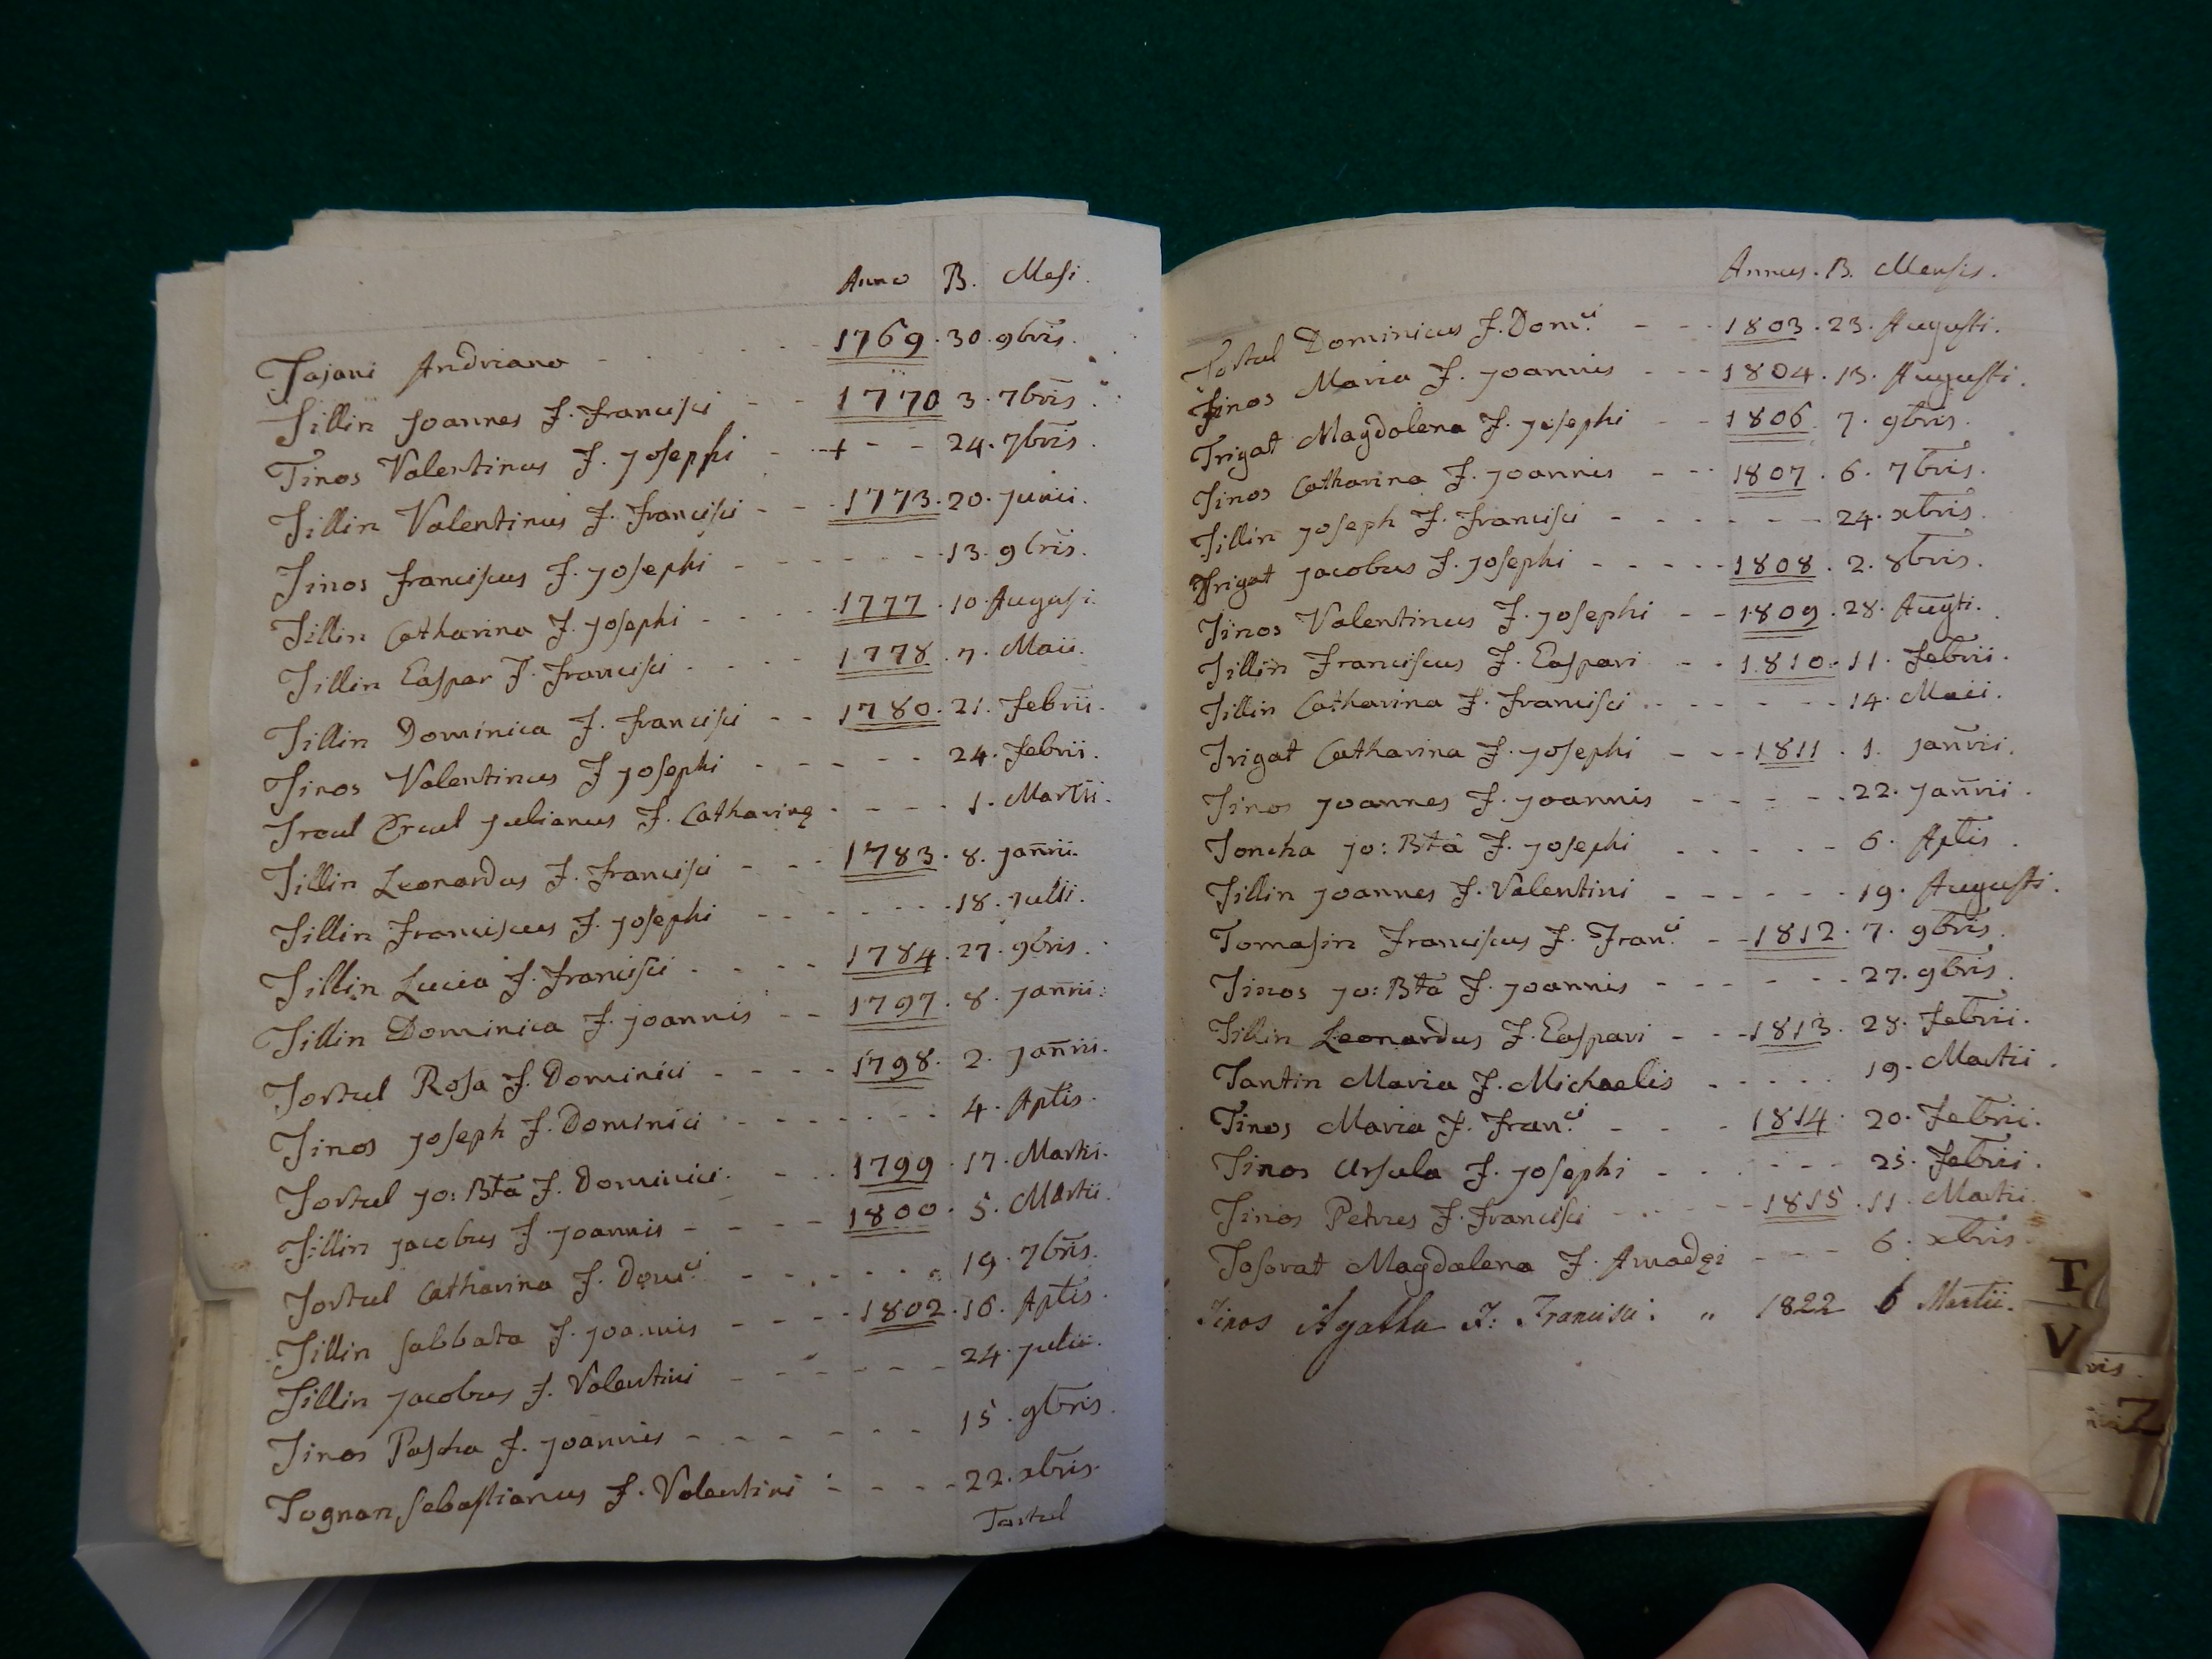 Anno B. Mesi.
Tajani Andriano - - - 1769. 30. 9bris.
Tillin Joannes F. Francisci - - 1770 3. 7bris.
Tinos Valentinus F. Josephi - - + - - 24. 7bris.
Tillin Valentinus F. Francisci - - - 1773. 20. Junii.
Tinos Franciscus F. Josephi - - - - - 13. 9bris.
Tillin Catharina F. Josephi - - - 1777. 10. Augusi.
Tillin Caspar F. Francisci - - - - 1778. 7. Maii.
Tillin Dominica F. Francisci - - 1780. 21. Febrii.
Tinos Valentinus F Josephi - - - - - 24. Febrii.
Treul Ercul Julianus F. Catharinę - - - - 1. Martii.
Tillin Leonardus F. Francisci - - - 1783. 8. Janrii.
Tillin Franciscus F. Josephi - - - - - - 18. Julii.
Tillin Lucia F. Francisci - - - - 1784. 27. 9bris.
Tillin Dominica F. Joannis - - 1797. 8. Janrii.
Tortul Rosa F. Dominici - - - - 1798. 2. Janrii.
Tinos Joseph F. Dominici - - - - - - 4. Aplis.
Tortul Jo: Bta F. Dominici. - - 1799. 17. Martii.
Tillin Jacobus F. Joannis - - - - 1800. 5. Martii.
Tortul Catharina F. Domci - - - - - - 19. 7bris.
Tillin Sabbata F. Joannis - - - - 1802. 16. Aplis.
Tillin Jacobus F. Valentini - - - - - - 24. Julii.
Tinos Pascha F. Joannis - - - - - - 15. 9bris.
Tognan Sebastianus F. Valentini - - - - 22. xbris.
Tortul
Annus. B. Mensis.
Tortul Dominicus F. Domci - - - 1803. 23. Augusti.
Tinos Maria F. Joannis - - - 1804. 13. Augusti.
Trigat Magdalena F. Josephi - - 1806. 7. 9bris.
Tinos Catharina F. Joannis - - - 1807. 6. 7bris.
Tillin Joseph F. Francisci - - - - - - 24. xbris.
Trigat Jacobus F. Josephi - - - - - 1808. 2. 8bris.
Tinos Valentinus F. Josephi - - 1809. 28. Augti.
Tillin Franciscus F. Caspari - - 1810. 11. Febrii.
Tillin Catharina F. Francisci - - - - - - 14. Maii.
Trigat Catharina F. Josephi - - - 1811. 1. Janrii.
Tinos Joannes F. Joannis - - - - - 22. Janrii.
Toncha Jo: Bta F. Josephi - - - - - 6. Aplis.
Tillin Joannes F. Valentini - - - - - - 19. Augusti.
Tomasin Franciscus F. Franci - - 1812. 7. 9bris.
Tinos Jo: Bta F. Joannis - - - - - - 27. 9bris.
Tillin Leonardus F. Caspari - - - 1813. 28. Febrii.
Tantin Maria F. Michaelis - - - - - 19. Martii.
Tinos Maria F. Franci - - - 1814. 20. Febrii.
Tinos Ursula F. Josephi - - - - - - 25. Febrii.
Tinos Petrus F. Francisci - - - - - 1815. 11. Martii.
Tosorat Magdalena F. Amadęi - - - 6. xbris.
Tinos Agatha F: Francisci. " 1822 6 Martii.
T
V
vis.
Z